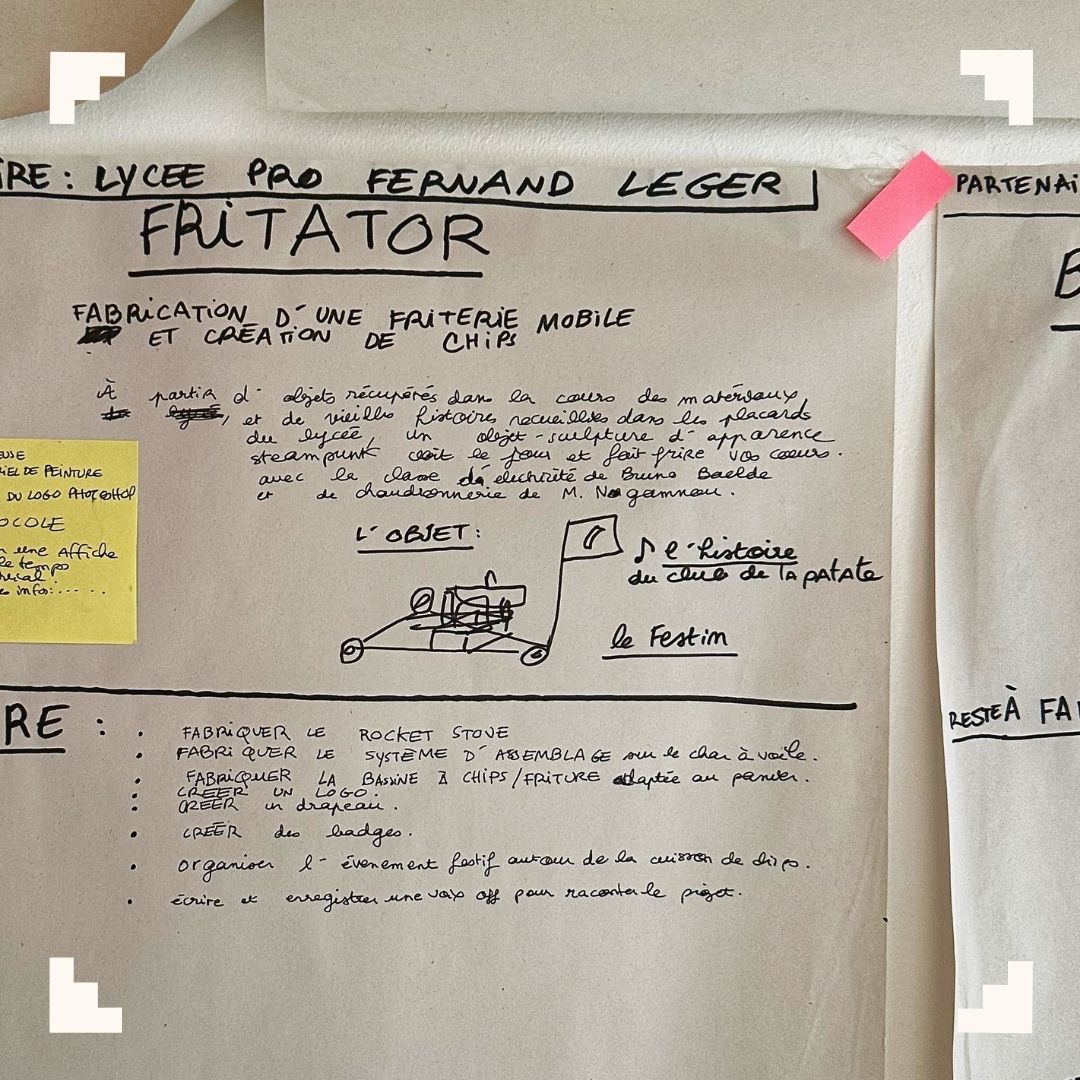 IRE : LYCEE PRO FERNAND LEGER
FRITATOR
FABRICATION D'UNE FRITERIE MOBILE
ET CREATION DE CHIPS
À partir d'objets récupérés dans la cours des matériaux,
et de vieilles histoires recueillies dans les placards
du lycée, un objet-sculpture d'apparence
steampunk voit le jour et fait frire vos coeurs.
avec la classe d'électricité de Bruno Baelde
et de chaudronnerie de M.
EUSE
RIEL DE PEINTURE
DU LOGO PHOTOSHOP
OCOLE
une Affiche
le temps
infos: .....
L'OBJET :
l'histoire
du club de la patate
le Festin
RE :
• FABRIQUER LE ROCKET STOVE
• FABRIQUER LE SYSTÈME D'ASSEMBLAGE sur le char à voile.
• FABRIQUER LA BASSINE À CHIPS/FRITURE adaptée au panier.
• CREER UN LOGO.
• CREER un drapeau.
• CRÉER des badges.
• organiser l'évenement festif autour de la cuisson de chips.
• écrire et enregistrer une voix off pour raconter le projet.
PARTENAI
B
RESTE À FAI